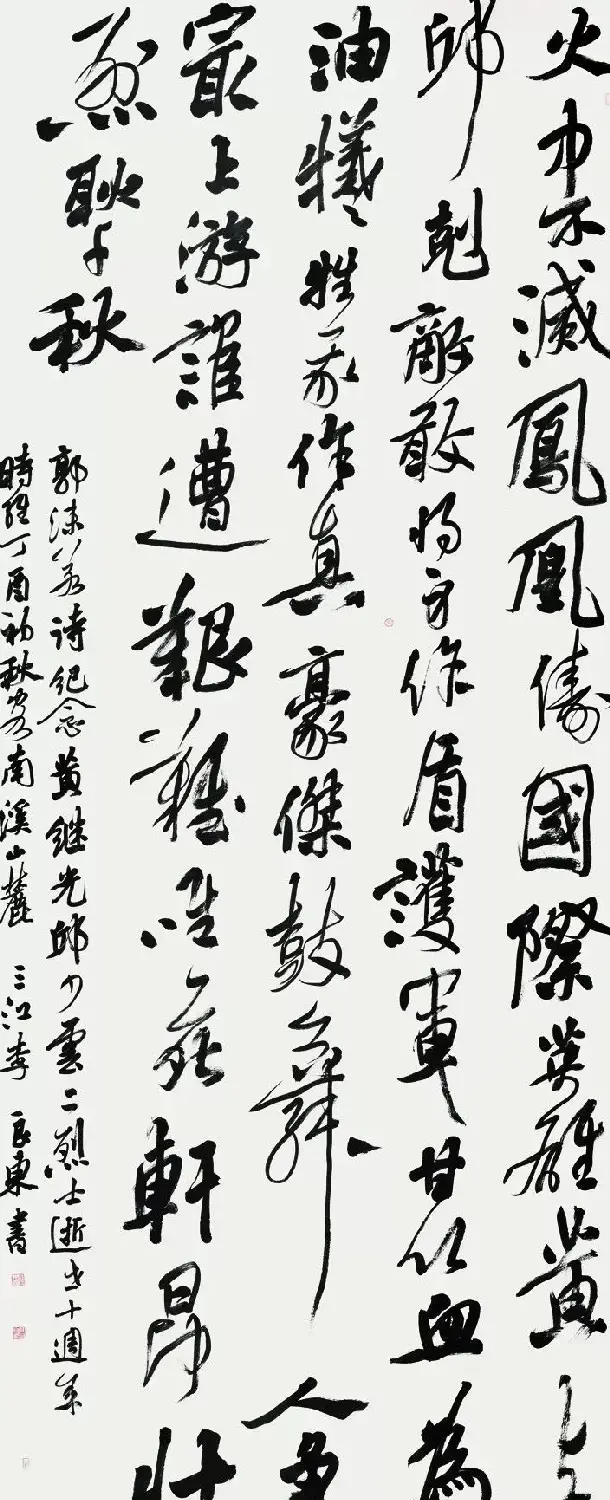 火中不滅鳳凰儔國際英雄黃與
邱剋敵敢將身作盾護軍甘以血為
油犧牲作真豪傑鼓舞人爭
最上游誰遭艱難軒昂壯
烈耿千秋
郭沫若詩紀念黃继光邱少雲二烈士逝世十週年
時維丁酉初秋客南溪山麓 三江李良東書